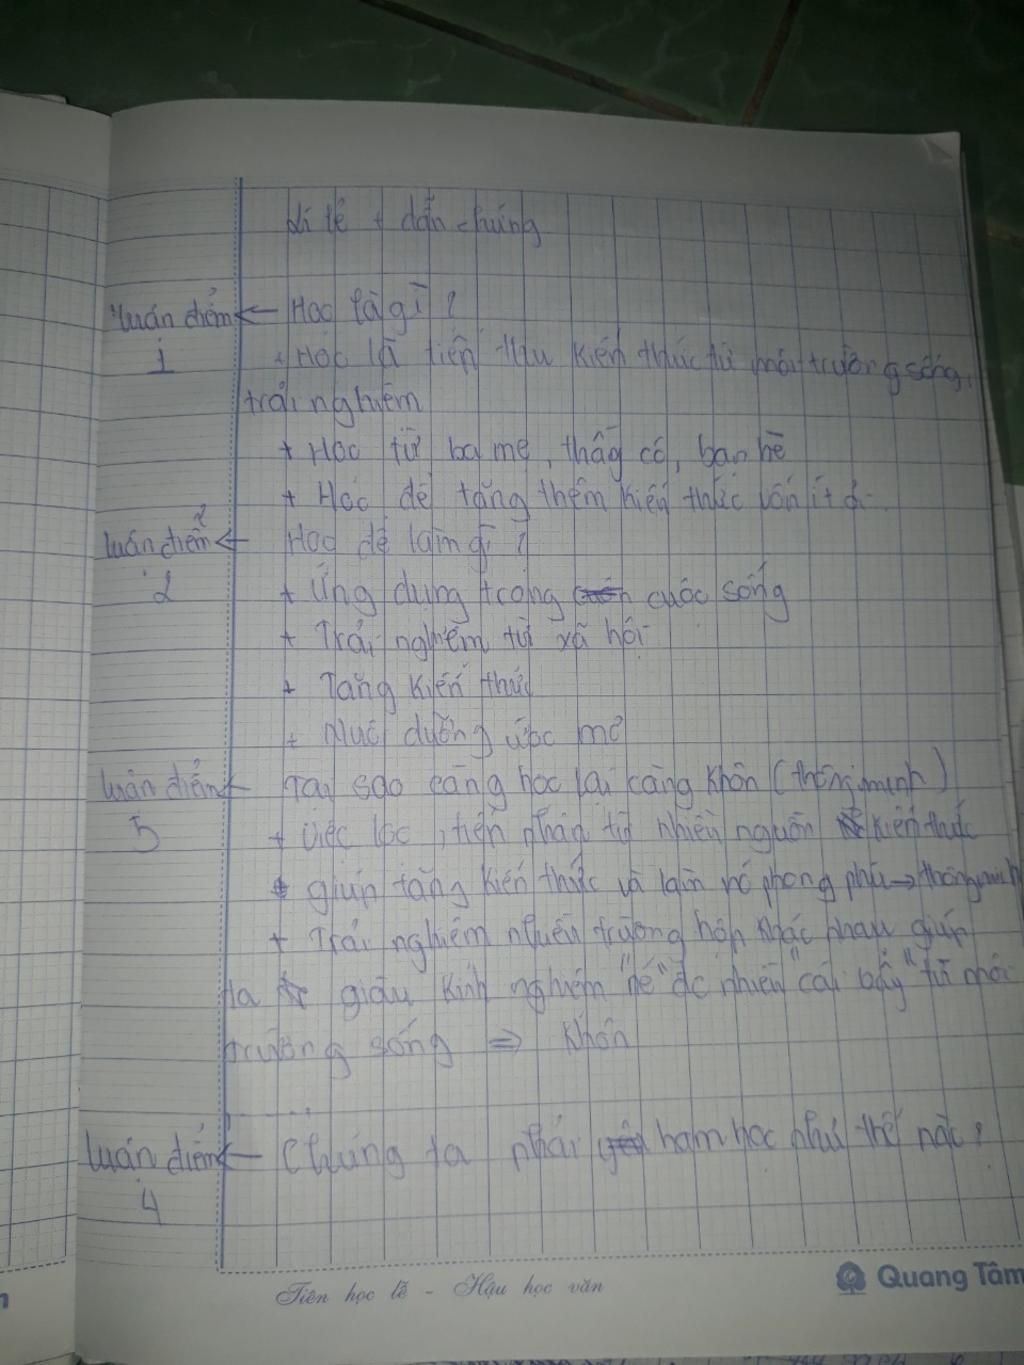 Lí lẽ + dẫn chứng
Luận điểm 1 <- Học là gì?
+ Học là tiến thu kiến thức từ môi trường sống,
trải nghiệm
+ Học từ ba mẹ, thầy cô, bạn bè
+ Học để tăng thêm kiến thức vốn ít ỏi
Luận điểm 2 <- Học để làm gì?
+ Ứng dụng trong cuộc sống
+ Trải nghiệm từ xã hội
+ Tăng kiến thức
+ Nuôi dưỡng ước mơ
Luận điểm 3 <- Tại sao càng học lại càng khôn (thông minh)
+ Việc lọc, tiến nhận từ nhiều nguồn kiến thức
giúp tăng kiến thức và làm nó phong phú -> thông minh
+ Trải nghiệm nhiều trường hợp khác nhau giúp
ta giàu kinh nghiệm "né" đc nhiều "cái bẫy" từ môi
trường sống => Khôn
Luận điểm 4 <- Chúng ta phải ham học như thế nào?
Tiên học lễ - Hậu học văn
Quang Tâm